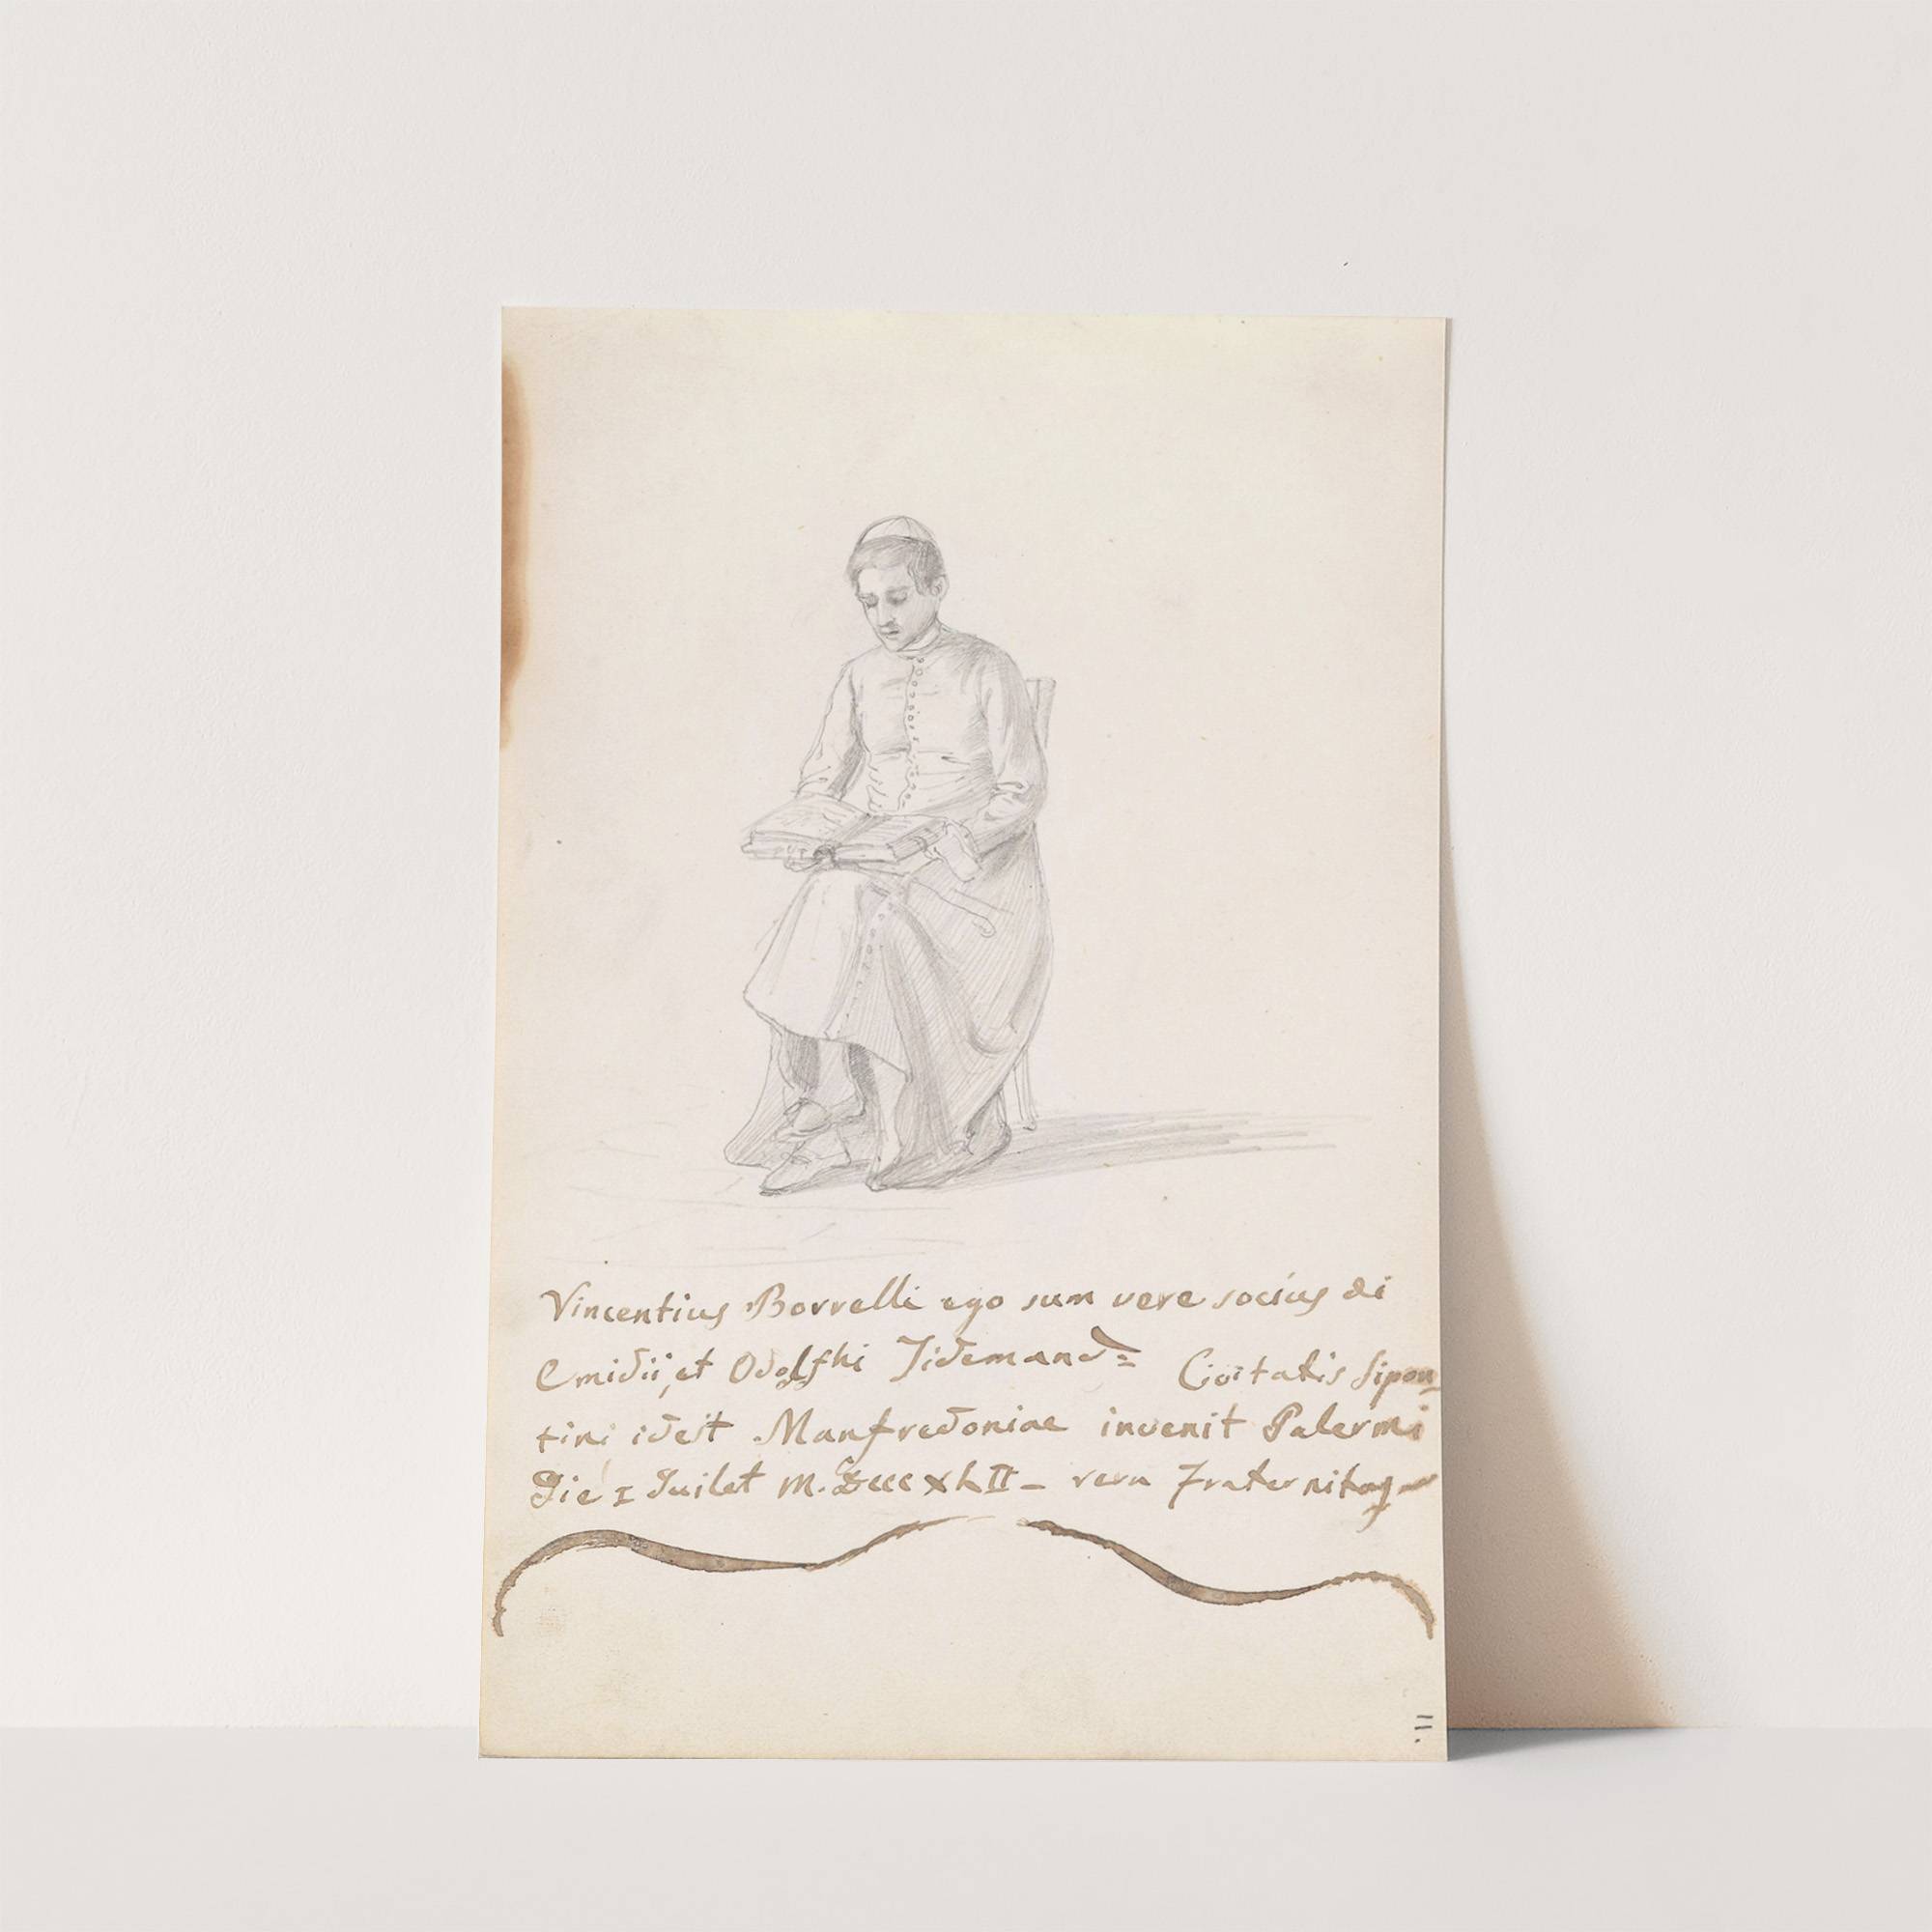 Vincentius Borrelli ego sum vere socius di
Emidii, et Odolfhi Tidemand=
Civitatis Sipon=
tini idest Manfredoniae invenit Palermi
Die I Juilet M.DCCCXLII – vera Fraternitas
11